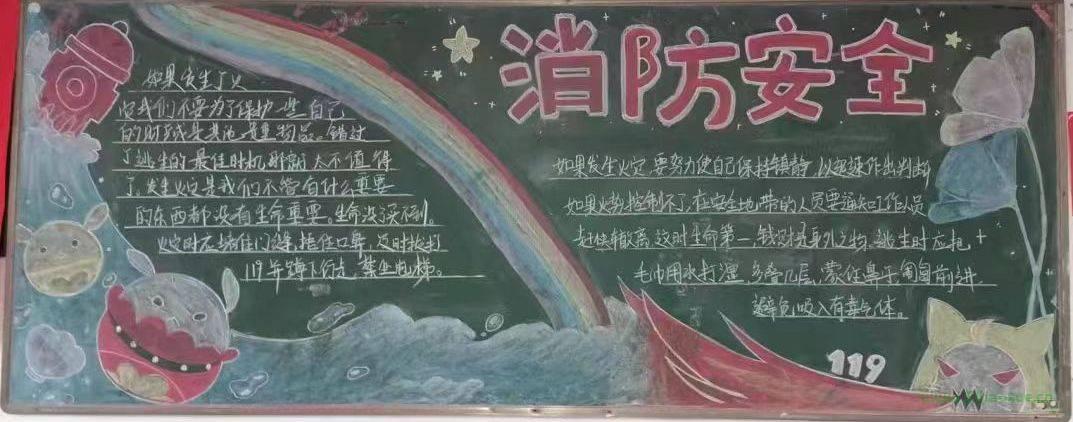 消防安全
如果发生了火
灾我们不要为了保护一些自己
的财或是其他 是重物品。错过
了逃生的最佳时机那就太不值得
了,发生火灾是我们不管有什么重要
的东西都没有生命重要。生命没没不到。
火灾时左堵住门缝,捂住口鼻,及时拨打
119并蹲下行走,禁坐电梯。
如果发生火灾,要努力使自己保持镇静,以迅速作出判断
如果火势控制不了,在安全地带的人员要通知工作人员
赶快撤离,这时生命第一,钱财是身外之物,逃生时应把
毛巾用水打湿,多叠几层,蒙住鼻子匍匐前进,
避免吸入有毒气体。
119